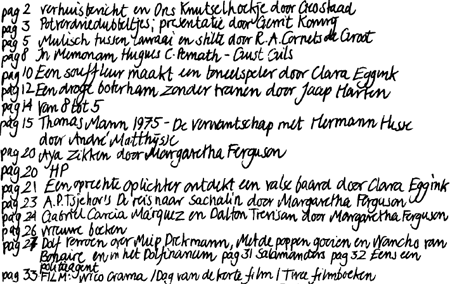 pag 2 verhuisbericht en Ons Knutselhoekje door Cleo
pag 3 Potverdriedubbeltjes; presentatie door Gerrit Komrij
pag 5 Mulisch tussen lawaai en stilte door R.A. Cornets de Groot
pag 8 In Memoriam Hugues C. Pernath - Gust Gils
pag 10 Een souffleur maakt een toneelspeler door Clara Eggink
pag 12 Een droge boterham zonder tranen door Jaap Harten
pag 14 van 8 tot 5
pag 15 Thomas Mann 1975 - De verwantschap met Hermann Hesse
door André Matthijsse
pag 20 Aya Zikken door Margaretha Ferguson
pag 20 HP
pag 21 Een oprechte oplichter ontdekt een valse baard door Clara Eggink
pag 23 A.P. Tsjechov's De reis naar Sachalin door Margaretha Ferguson
pag 24 Gabriel Garcia Márquez en Dalton Trevisan door Margaretha Ferguson
pag 26 nieuwe boeken
pag 27 Dolf Verroen over Miep Diekmann, Met de poppen gooien en Wancho van
Bonaire en in het Dolfinarium pag 31 Salamanders pag 32 Eens een
politieagent
pag 33 FILM: Wico Crama / Dag van de korte film / Twee filmboeken